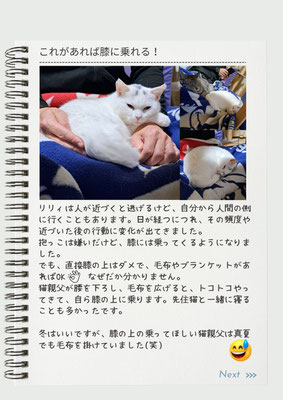 これがあれば膝に乗れる！
リリィは人が近づくと逃げるけど、自分から人間の側
に行くこともあります。日が経つにつれ、その頻度や
近づいた後の行動に変化が出てきました。
抱っこは嫌いだけど、膝には乗ってくるようになりま
した。
でも、直接膝の上はダメで、毛布やブランケットがあ
ればOK👌 なぜだか分かりません。
猫親父が腰を下ろし、毛布を広げると、トコトコやっ
てきて、自ら膝の上に乗ります。先住猫と一緒に寝る
ことも多かったです。
冬はいいですが、膝の上の乗ってほしい猫親父は真夏
でも毛布を掛けていました(笑)
Next >>>